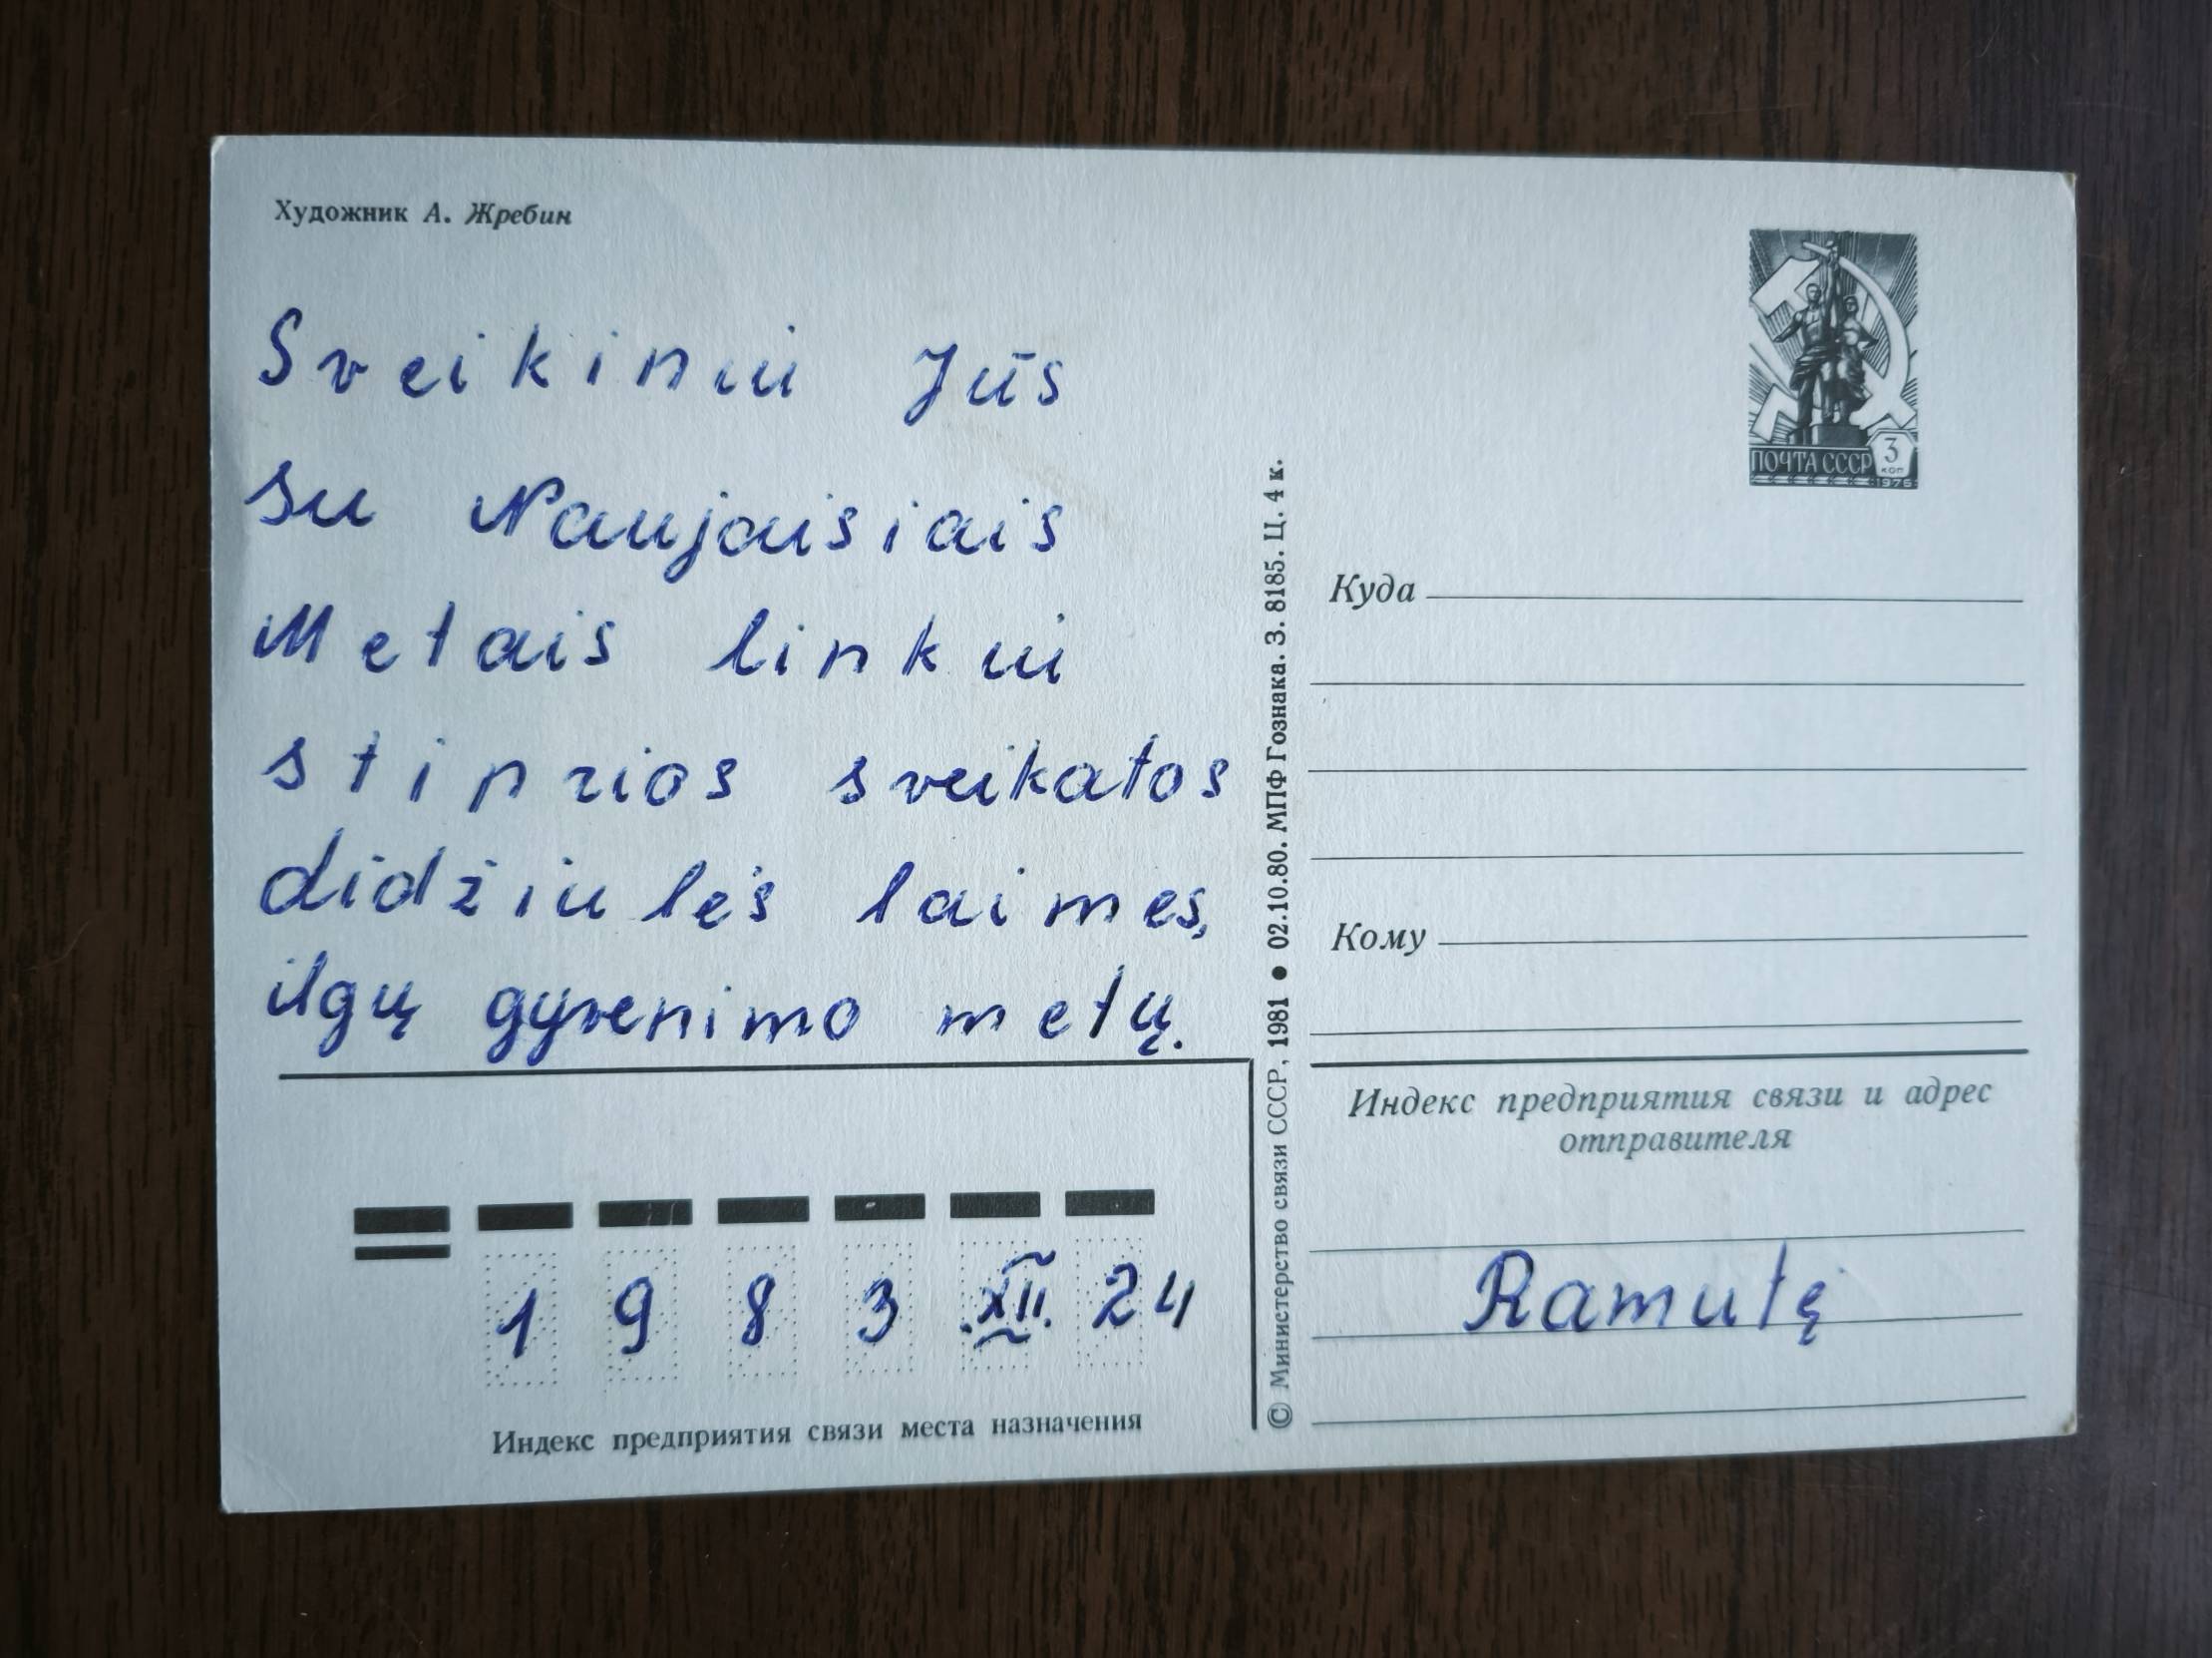 Художник А. Жребин
Sveikinu Jūs
su Naujaisiais
Metais linkiu
stiprios sveikatos
didžiulės laimes,
ilgų gyvenimo metų.
1 9 8 3 .XII. 24
Индекс предприятия связи места назначения
© Министерство связи СССР, 1981 ● 02.10.80. МПФ Гознака. З. 8185. Ц. 4 к.
ПОЧТА СССР
3
КОП
1976
Куда
Кому
Индекс предприятия связи и адрес
отправителя
Ramutę